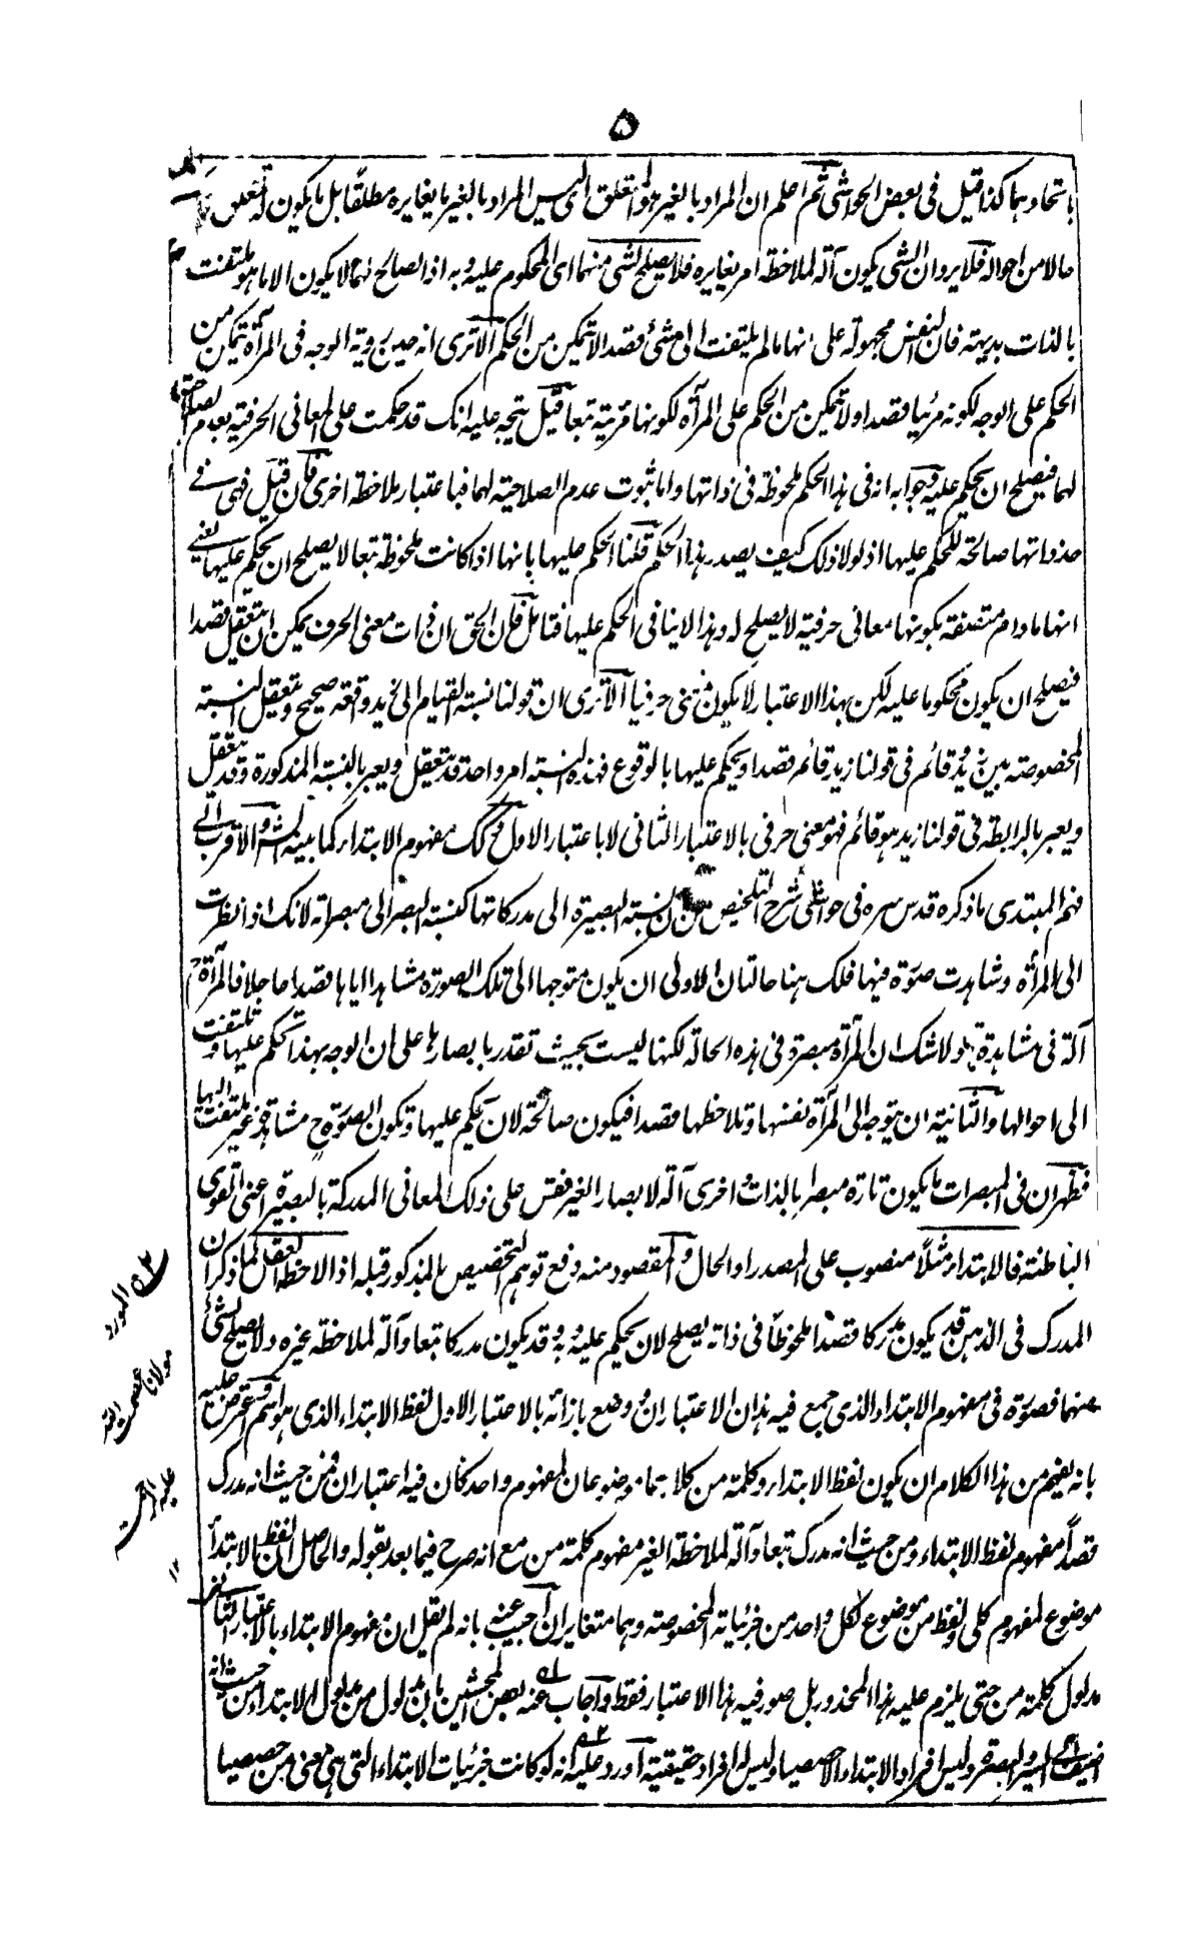 ۵
باتحادهما كذا قيل فى بعض الحواشى ثم اعلم ان المراد بالغير هو المتعلق اى ليس المراد بالغير ما يغايره مطلقا بل ما يكون له تعلق
حالا من احواله فلا يرد ان الشى يكون آلة لملاحظة امر يغايره فلا يصلح لشى منهما اى المحكوم عليه وبه اذ الصالح لهما لا يكون الا ما هو ملتفت
بالذات بديهة فان النفس مجهولة على انها ما لم يلتفت الى شئ قصدا لا تتمكن من الحكم الا ترى انه حين روية الوجه فى المرآة تتمكن من
الحكم على الوجه لكونه مرئيا قصدا ولا تتمكن من الحكم على المرآة لكونها مرئية تبعا قيل يتجه عليه انك قد حكمت على المعانى الحرفية بعدم
لهما فيصلح ان يحكم عليه وجوابه انه فى هذا الحكم ملحوظة فى ذاتها واما ثبوت عدم الصلاحية لهما فباعتبار ملاحظة اخرى فان قيل فهى فى
حد ذاتها صالحة للحكم عليها اذ لولا ذلك كيف يصدر هذا الحكم قلنا الحكم عليها بانها اذا كانت ملحوظة تبعا لا يصلح ان يحكم عليها يعنى
انها ما دام متصفة بكونها معانى حرفية لا يصلح له وهذا لا ينافى الحكم عليها فتامل فان الحق ان ذات معنى الحرف يمكن ان يتعقل قصدا
فيصلح ان يكون محكوما عليه لكن بهذا الاعتبار لا يكون معنى حرفيا الا ترى ان قولنا نسبة القيام الى زيد واقعة صحيح وتتعقل النسبة
المخصوصة بين زيد وقائم فى قولنا زيد قائم قصدا ويحكم عليها بالوقوع فهذه النسبة امر واحد قد يتعقل ويعبر بالنسبة المذكورة وقد يتعقل
ويعبر بالرابطة فى قولنا زيد هو قائم فهو معنى حرفى بالاعتبار الثانى لا باعتبار الاول وكك مفهوم الابتداء كما بينه الش والاقرب الى
فهم المبتدى ما ذكره قدس سره فى حواشى شرح التلخيص من ان نسبة البصيرة الى مدركاتها كنسبة البصر الى مبصراته لانك اذا نظرت
الى المرآة وشاهدت صورة فيها فلك هنا حالتان الاولى ان يكون متوجها الى تلك الصورة مشاهدا اياها قصدا جاعلا فالمرآة ح
آلة فى مشاهدتها ولا شك ان المرآة مبصرة فى هذه الحالة لكنها ليست بحيث تقدر بابصارها على ان الوجه بهذا تحكم عليها وتلتفت
الى احوالها والثانية ان يتوجه الى المرآة نفسها وتلاحظها قصدا فيكون صالحة لان يحكم عليها وتكون الصورة ح مشاهدة غير ملتفت اليها
فظهر ان فى المبصرات ما يكون تارة مبصرا بالذات واخرى آلة لابصار الغير فقس على ذلك المعانى المدركة بالبصيرة اعنى القوى
الباطنة فالابتداء مثلا منصوب على المصدر او الحال والمقصود منه دفع توهم التخصيص بالمذكور قبله اذا لاحظه العقل لما ذكر ان
المدرك فى الذهن قد يكون مدركا قصدا ملحوظا فى ذاته يصلح لان يحكم عليه وبه وقد يكون مدركا تبعا وآلة لملاحظة غيره ولا يصلح لشئ
منهما فصوره فى مفهوم الابتداء الذى جمع فيه هذان الاعتباران ووضع بازائه بالاعتبار الاول لفظ الابتداء الذى هو اسم واعترض عليه
بانه يفهم من هذا الكلام ان يكون لفظ الابتداء وكلمة من كلاهما موضوعان لمفهوم واحد كان فيه اعتباران فمن حيث انه مدرك
قصدا مفهوم لفظ الابتداء ومن حيث انه مدرك تبعا وآلة لملاحظة الغير مفهوم كلمة من مع انه صرح فيما بعد بقوله والحاصل ان لفظ الابتداء
موضوع لمفهوم كلى ولفظ من موضوع لكل واحد من جزئياته المخصوصة وهما متغايران اجيب عنه بانه لم يقل ان مفهوم الابتداء بالاعتبار الثانى
مدلول كلمة من حتى يلزم عليه هذا المحذور بل صور فيه هذا الاعتبار فقط واجاب عنه بعض المحشين بان مدلول من مدلول الابتداء من حيث انه
اضيف الى السير والبصرة وليس افراد الابتداء الا حصصها وليس له افراد حقيقية اورد عليه انه لو كانت جزئيات الابتداء التى هى معنى من حصصها
المورد
مولانا عصمت الله
عليه الرحمة
۱۲